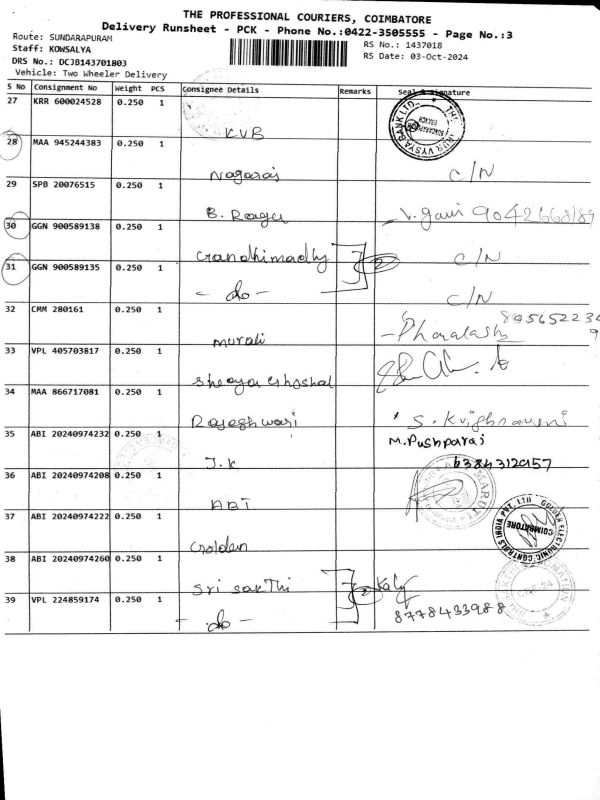 THE PROFESSIONAL COURIERS, COIMBATORE
Delivery Runsheet - PCK - Phone No.:0422-3505555 - Page No.:3
Route: SUNDARAPURAM
RS No.: 1437018
Staff: KOWSALYA
RS Date: 03-Oct-2024
DRS No.: DCJB143701803
Vehicle: Two Wheeler Delivery
S No Consignment No Weight PCS Consignee Details Remarks Seal & Signature
27 KRR 600024528 0.250 1 KVB
28 MAA 945244383 0.250 1 Nagaraj C/N
29 SPB 20076515 0.250 1 B. Ragu 9042668189
30 GGN 900589138 0.250 1 Gandhimadhy 2 C/N
31 GGN 900589135 0.250 1 - do - C/N
32 CMM 280161 0.250 1 murali
33 VPL 405703817 0.250 1
34 MAA 866717081 0.250 1 Rajeshwari
35 ABI 20240974232 0.250 1 J.K M.Pushparaj
6384312957
36 ABI 20240974208 0.250 1 ABI
37 ABI 20240974222 0.250 1 Golden COIMBATORE
38 ABI 20240974260 0.250 1 Sri Sakthi 2
39 VPL 224859174 0.250 1 - do - 8778433988